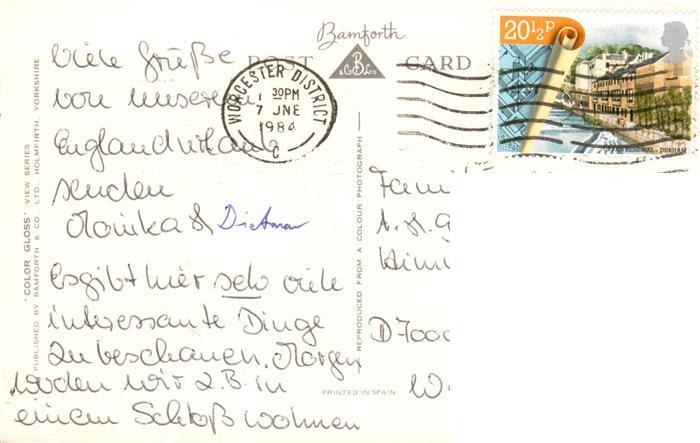 Bamforth
POST CARD
B
& Co Ltd
20½P
URBAN RENEWAL - DURHAM
WORCESTER DISTRICT
30PM
7 JNE
1984
C
Viele Grüße
von unserem
Englandurlaub
senden
Monika & Dietmar
Es gibt hier sehr viele
interessante Dinge
zu beschauen. Morgen
werden wir z.B. in
einem Schloß wohnen
Fami
D 7000
W
'COLOR GLOSS' VIEW SERIES
PUBLISHED BY BAMFORTH & CO. LTD. HOLMFIRTH, YORKSHIRE
REPRODUCED FROM A COLOUR PHOTOGRAPH
PRINTED IN SPAIN